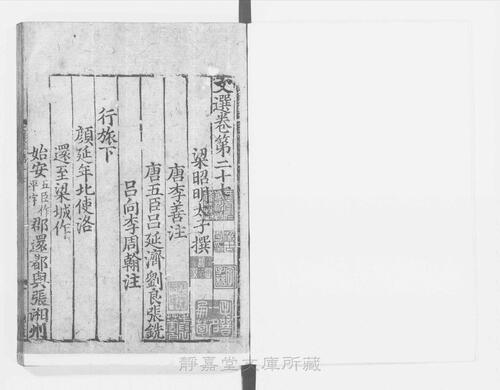 文選卷第二十七
梁昭明太子撰
唐李善注
唐五臣呂延濟劉良張銑
呂向李周翰注
行旅下
顔延年北使洛
還至梁城作
始安五臣作平字郡還都與張湘州
靜嘉堂文庫所藏